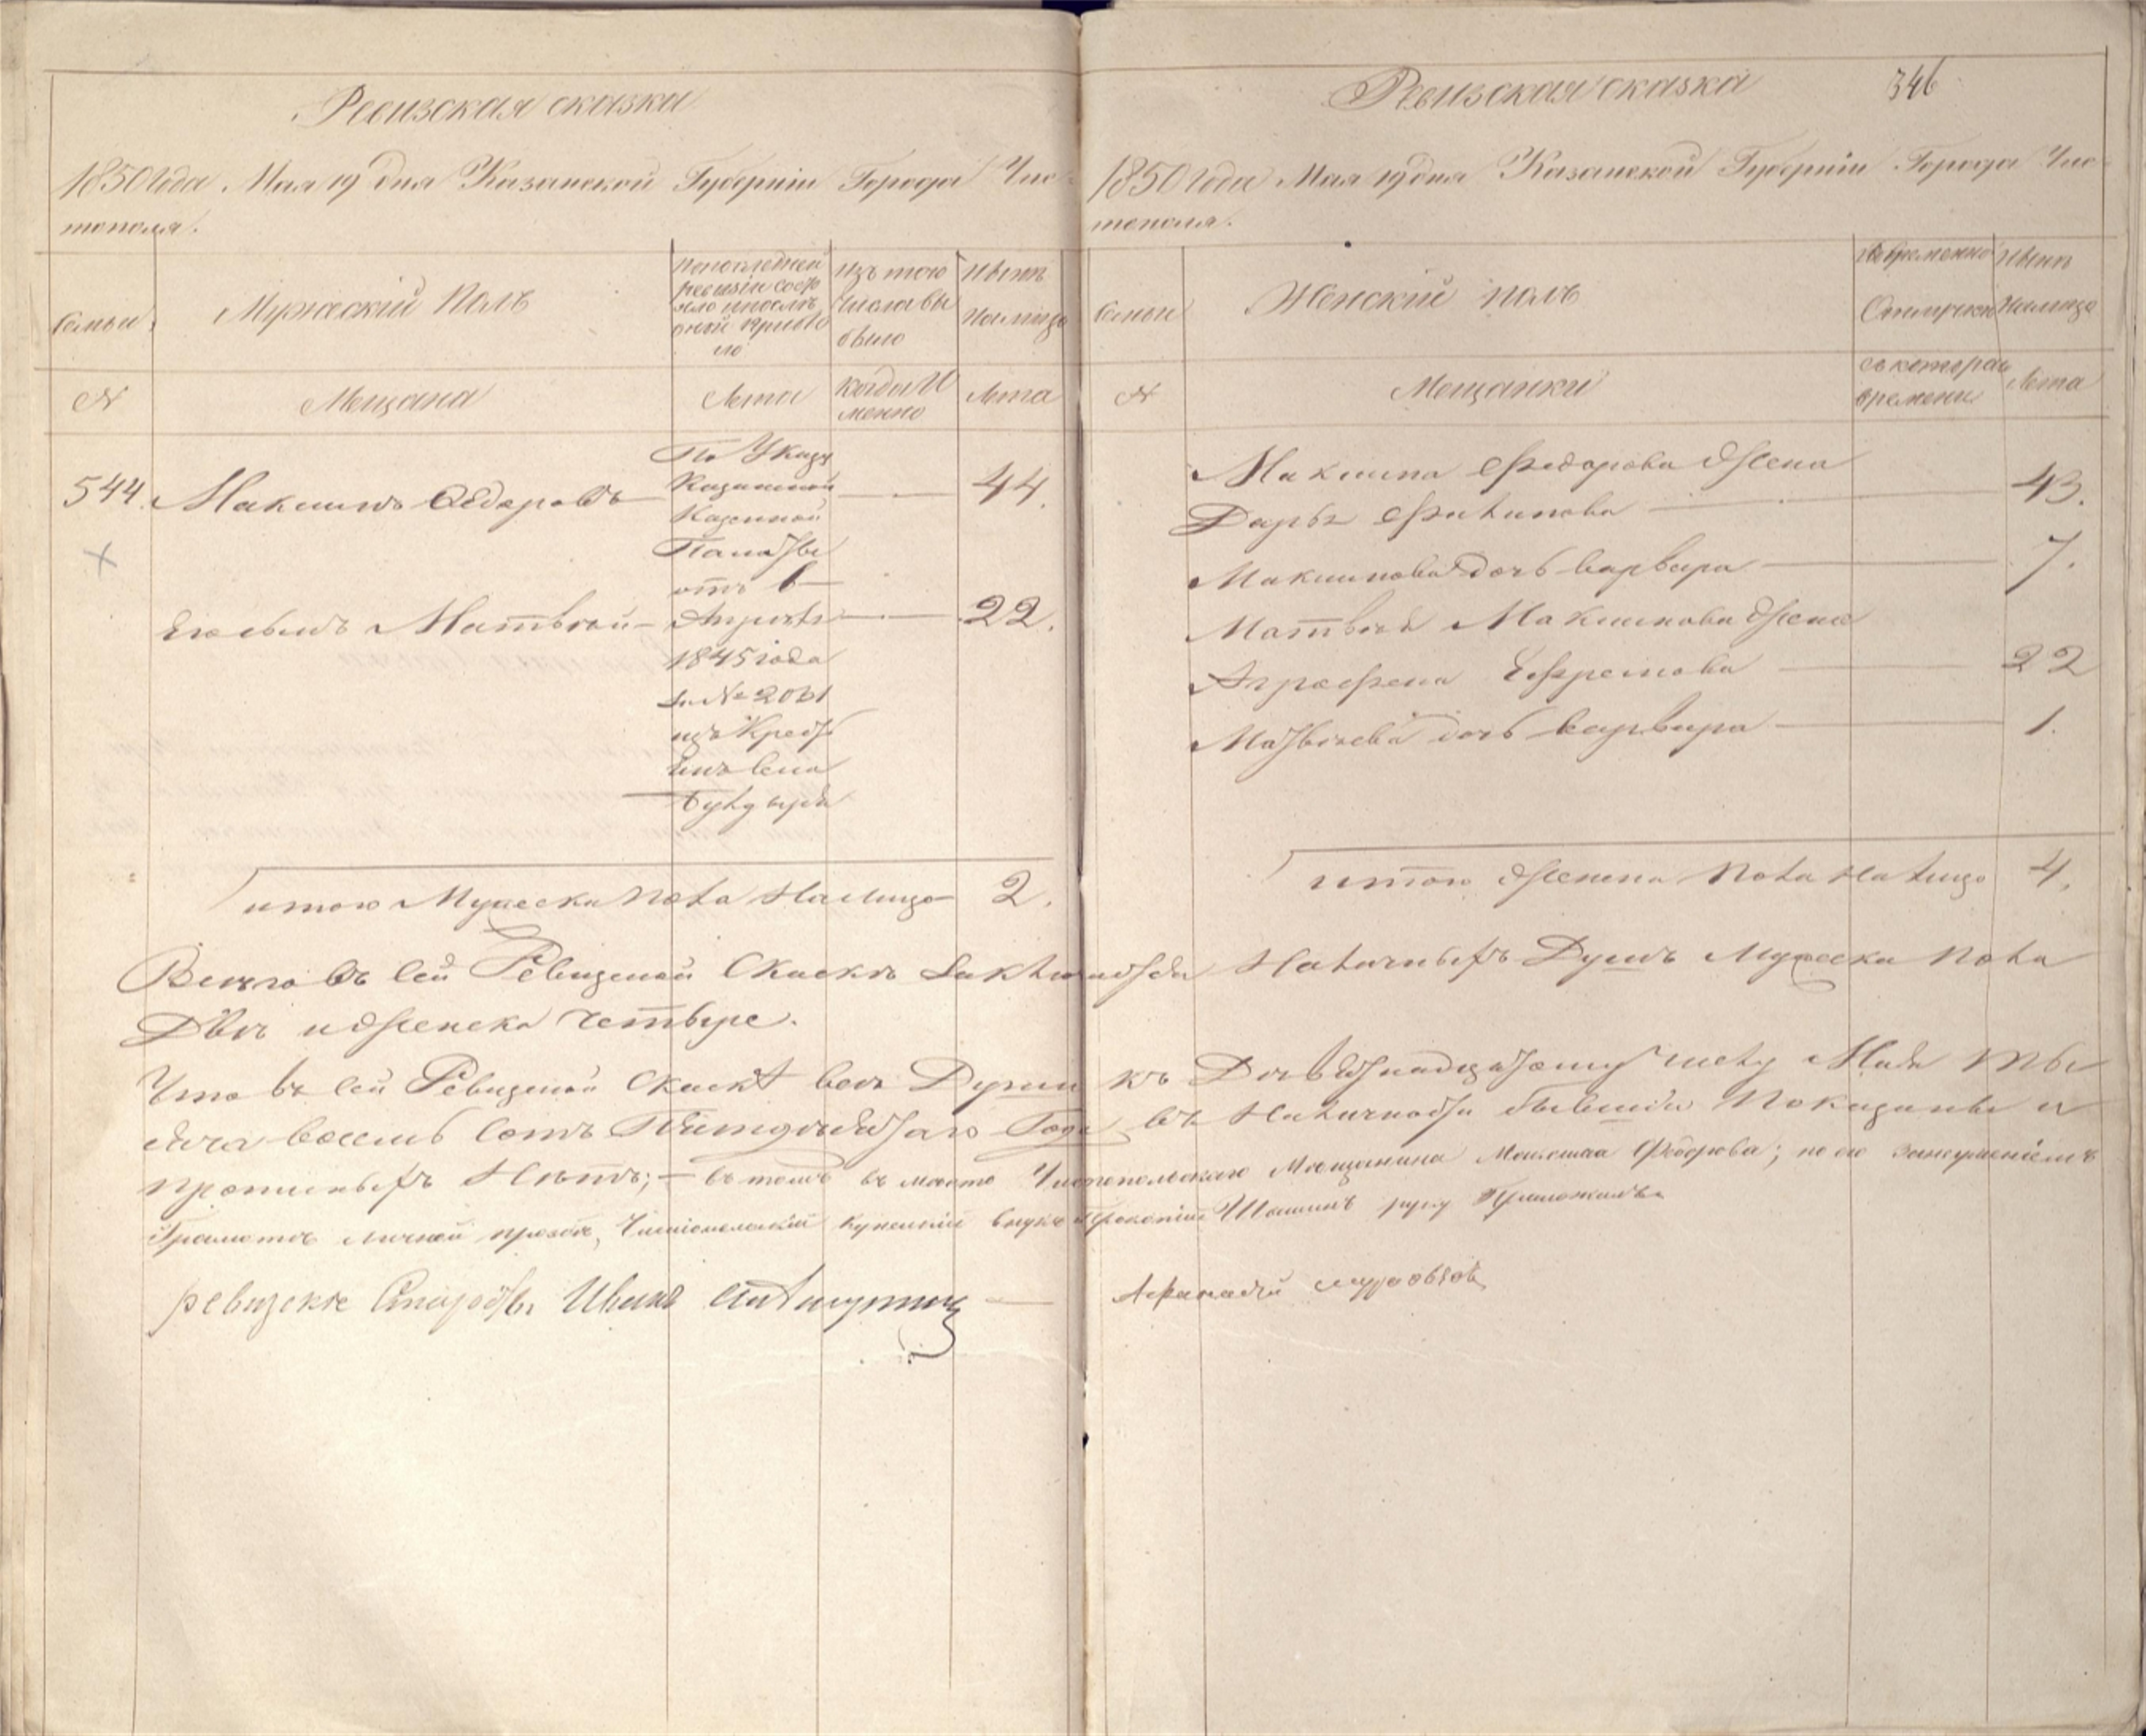 Ревизская сказка
1850 года Мая 19 дня Казанской Губернiи Города Чис-
тополя.
Семьи
Мужескiй Полъ
По последней
ревизiи состо
яло и после
оной прибы
ло
Изъ того
Числа вы
было
Ныне
На лицо
N
Мещана
Лета
Когда И
менно
Лета
544.
Максимъ Федоровъ
По Указу
Казанской
Казенной
Палаты
отъ 6
44.
Его сынъ Матвей
Апреля
1845 года
за № 2031
изъ Крестъ
22.
Итого Мужеска Пола На лицо 2.
Ревизская сказка
346
1850 года Мая 19 дня Казанской Губернiи Города Чис-
тополя.
Семьи
Женскiй полъ
Во временной
Отлучке
Ныне
На лицо
N
Мещанки
Съ котораго
времени
Лета
Максима Федорова Жена
Дарья Филипова 43.
Максимова дочь Варвара 7.
Матвея Максимова Жена
Аграфена Ефремова 22
Матвеева дочь Варвара 1.
Итого Женска Пола На лицо 4.
Всего въ сей Ревизской Сказке Заключается Наличныхъ Душъ Мужеска Пола
Две и Женска четыре.
Что въ сей Ревизской Сказке все Души къ Девятнадцатому числу Мая ты
сяча восемь сотъ Пятидесятаго Года въ Наличности бывшiя Показаны и
прописныхъ Нетъ; въ томъ въ место Чистопольскаго Мещанина Максима Федорова; по его неуменiемъ
Грамоте личной прозбе, Чистопольскiй купеческiй внукъ Прокопiй Шашинъ руку Приложилъ
ревизске Староста Иванъ
Афанасiй